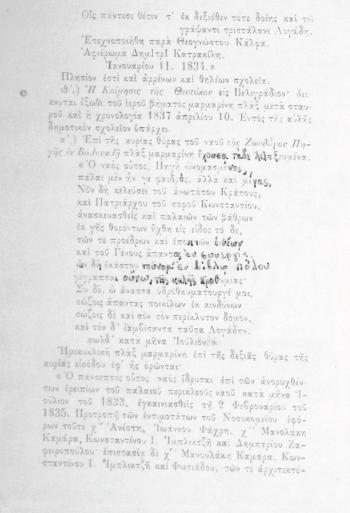 Οἷς πάντεσι θέτιν τ' ἐκ δεξιόθεν τοτε δοίης καὶ τῷ
γράψαντι τριστάλανι Λογάδῃ.
Ἐτεχνοποιήθη παρὰ Θεογνώστου Κάλφα.
Ἀφιέρωμα Δημιτρὶ Κατρακίλη.
Ἰανουαρίου 11. 1834.»
Πλησίον ἐστὶ καὶ ἀρρένων καὶ θηλέων σχολεῖα.
θ΄.) Ἡ Κοίμησις τῆς Θεοτόκου εἰς Βελιγράδιον· δεί-
κνυται ἔξωθι τοῦ ἱεροῦ βήματος μαρμαρίνη πλὰξ μετὰ σταυ-
ροῦ καὶ ἡ χρονολογία 1837 ἀπριλίου 10. Ἐντὸς τῆς αὐλῆς
δημοτικὸν σχολεῖον ὑπάρχει.
κ΄.) Ἐπὶ τῆς κυρίας θύρας τοῦ ναοῦ τῆς Ζωοδόχου Πη-
γῆς ἐν πλὰξ μαρμαρίνη ἔχουσα τάδε
«Ὁ ναὸς οὗτος, Πηγὴ ὠνομασμένος,
πάλαι μὲν ἦν γε φαιδρός, ἀλλὰ καὶ μέγας,
Νῦν δὴ κελεύσει τοῦ ἀνωτάτου Κράτους,
καὶ Πατριάρχου τοῦ σοφοῦ Κωνσταντίου.
ἀνασκευασθεὶς καὶ παλαιῶν τῶν βάθρων
ἐκ γῆς θορόντων ἤχθη εἰς εἶδος τὸ δε,
τῶν τε προέδρων καὶ
καὶ τοῦ Γένους ἅπαντος
ὧν δὴ ἑκάστου τοὔνομ' ἐν βίβλῳ πόλου
γέγραπται οὕτω, τῆς καλῆς προθυμίας·
Σὺ δὲ, ὦ ἄνασσα ὑδροθαυματουργέ μοι,
σώζοις ἅπαντας ποικίλων ἐκ κινδύνων
σώζοις δὲ καὶ σὸν τὸν περίκλυτον δόμον,
καὶ τὸν δ' ἰαμβίσαντα ταῦτα Λογάδην».
κατὰ μῆνα Ἰούλιον
Ἡμικυκλικὴ πλὰξ μαρμαρίνη ἐπὶ τῆς δεξιᾶς θύρας τῆς
κυρίας εἰσόδου ἐφ' ἧς ὁρῶνται·
«Ὁ πάνσεπτος οὗτος ναὸς ἵδρυται ἐπὶ τῶν ἀνορυχθέν-
των ἐρειπίων τοῦ παλαιοῦ περικλεοῦς ναοῦ κατὰ μῆνα Ἰ-
ούλιον τοῦ 1833, ἐγκαινιασθεὶς τῇ 2 Φεβρουαρίου τοῦ
1835. Προτροπῇ τῶν ἐντιμοτάτων τοῦ Νοσοκομείου ἐφό-
ρων τοῦτε χ" Ἀνέστη, Ἰωάννου Ψάχρη, χ" Μανολάκη
Καμάρα, Κωνσταντίνου Ι. Ἰμπλικτζῆ καὶ Δημητρίου Ζα-
φειροπούλου· ἐπιστασίᾳ δὲ χ" Μανουλάκη Καμάρα, Κων-
σταντίνου Ι. Ἰμπλικτζῆ καὶ Φωτιάδου, τῶν τε ἀρχιτεκτό-